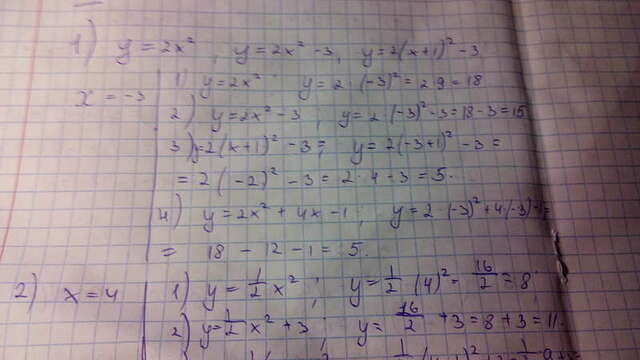 1) y = 2x², y = 2x² - 3, y = 2(x+1)² - 3
x = -3
1) y = 2x² y = 2 (-3)² = 2·9 = 18
2) y = 2x² - 3, y = 2 (-3)² - 3 = 18 - 3 = 15
3) = 2(x+1)² - 3; y = 2(-3+1)² - 3 =
= 2(-2)² - 3 = 2·4 - 3 = 5.
4) y = 2x² + 4x - 1, y = 2
= 18 - 2 - 1 = 5.
2) x = 4
1) y = 1/2 x²; y = 1/2 (4)² = 16/2 = 8;
2) y = 1/2 x² + 3; y = 16/2 + 3 = 8 + 3 = 11.